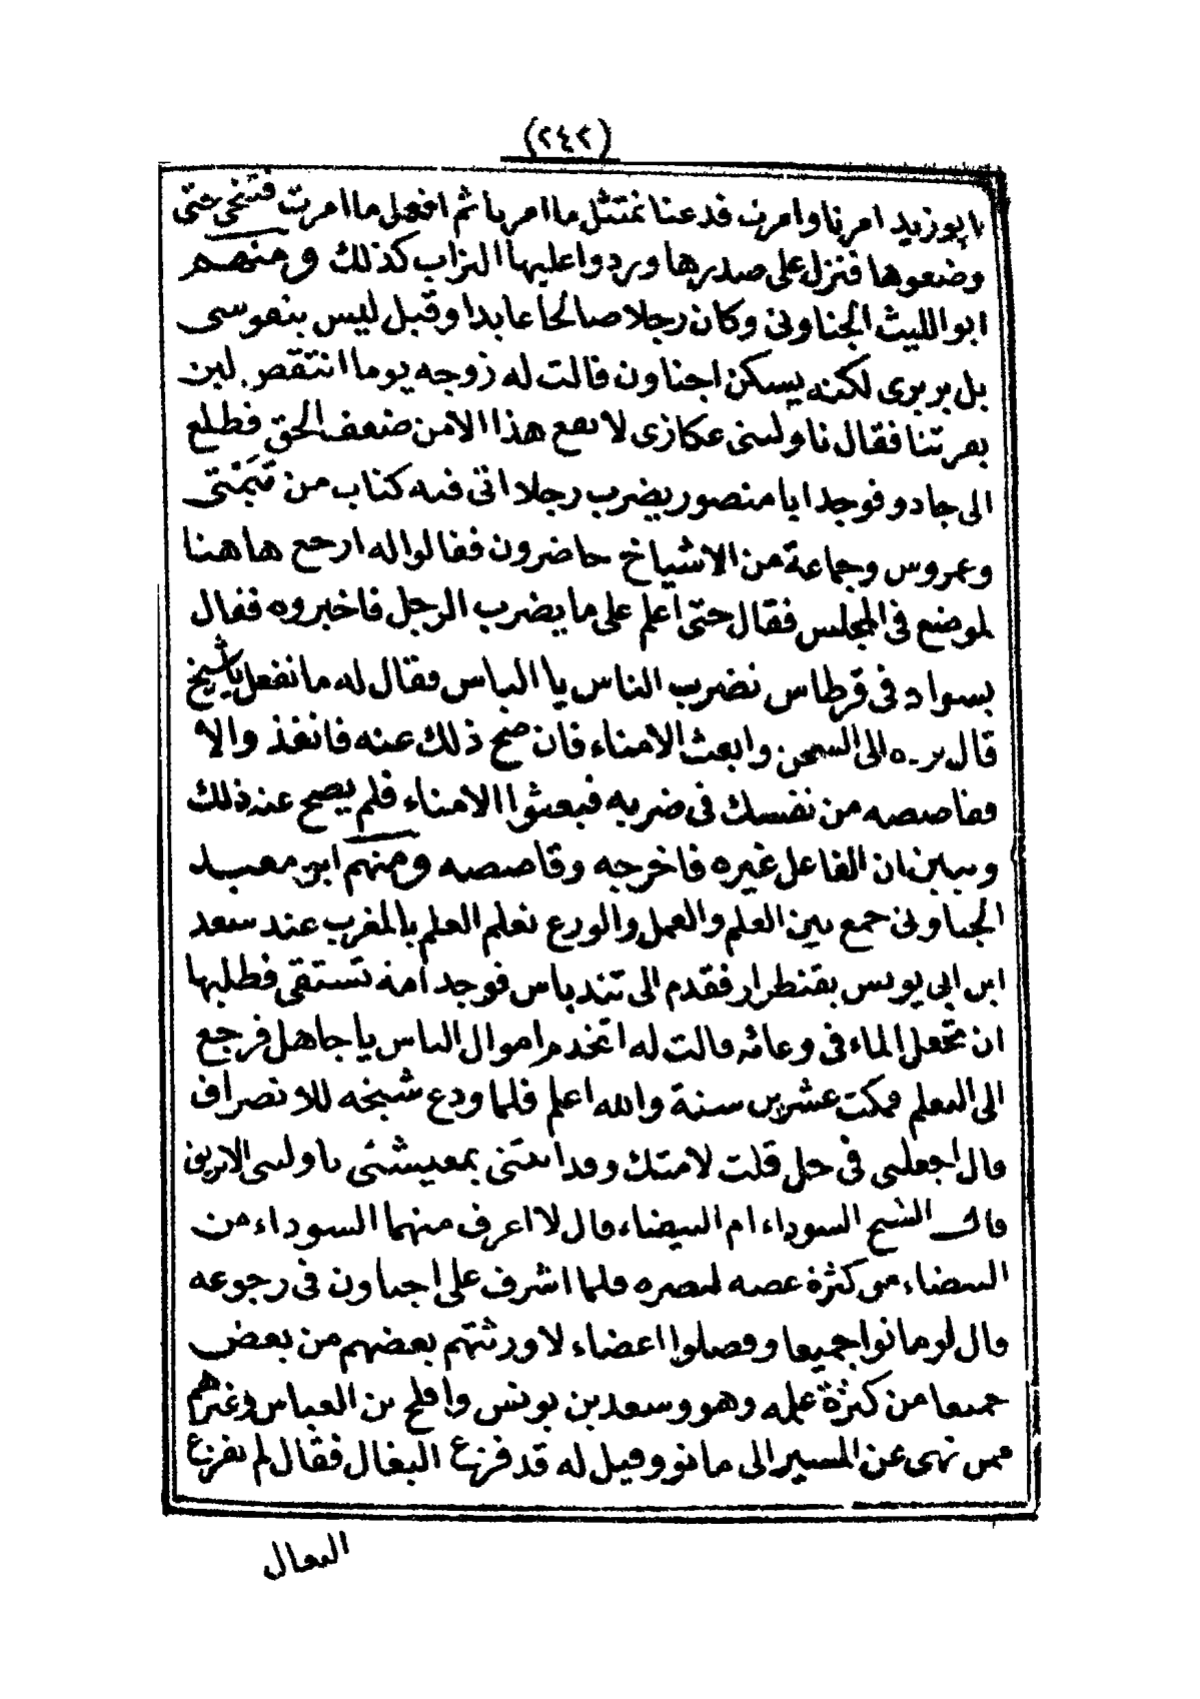 (٢٤٢)
يا بوزيد امرنا وامرت فدعنا نمتثل ما امرنا ثم افعل ما امرت فتنحى حتى
وضعوها فنزل على صدرها وردوا عليها التراب كذلك ومنهم
ابو الليث الجناونى وكان رجلا صالحا عابدا وقيل ليس بنفوسى
بل بربرى لكنه يسكن اجناون قالت له زوجه يوما انتقص لبن
بقرتنا فقال ناولينى عكازى لا يقع هذا الامن ضعف الحق فطلع
الى جادو فوجد ابا منصور يضرب رجلا اتى فيه كتاب من تمنتى
وعمروس وجماعة من الاشياخ حاضرون فقالوا له ارجع هاهنا
لموضع فى المجلس فقال حتى اعلم على ما يضرب الرجل فاخبروه فقال
بسواد فى قرطاس تضرب الناس يا الياس فقال له ما نفعل يا شيخ
قال يرده الى السجن وابعث الامناء فان صح ذلك عنه فانفذ والا
فقاصصه من نفسك فى ضربه فبعثوا الامناء فلم يصح عند ذلك
وتبين ان الفاعل غيره فاخرجه وقاصصه ومنهم ابو معبد
الجناونى جمع بين العلم والعمل والورع تعلم العلم بالمغرب عند سعد
ابن ابى يونس بقنطرار فقدم الى تندباس فوجد امة تستقى فطلبها
ان تجعل الماء فى وعائه قالت له اتخدم اموال الناس يا جاهل فرجع
الى التعلم فمكث عشرين سنة والله اعلم فلما ودع شيخه للانصراف
قال اجعلنى فى حل قلت لامتك وقد اتتنى بمعيشتى ناولينى الابريق
قال الشيخ السوداء ام البيضاء قال لا اعرف منهما السوداء من
البيضاء من كثرة غضه لبصره فلما اشرف على اجناون فى رجوعه
قال لو ماتوا جميعا وفصلوا اعضاء لاورثتهم بعضهم من بعض
جميعا من كثرة علمه وهو وسعد بن يونس وافلح بن العباس وغيرهم
ممن نهى عن المسير الى مانو وقيل له قد فزع البغال فقال لم تفزع
البغال